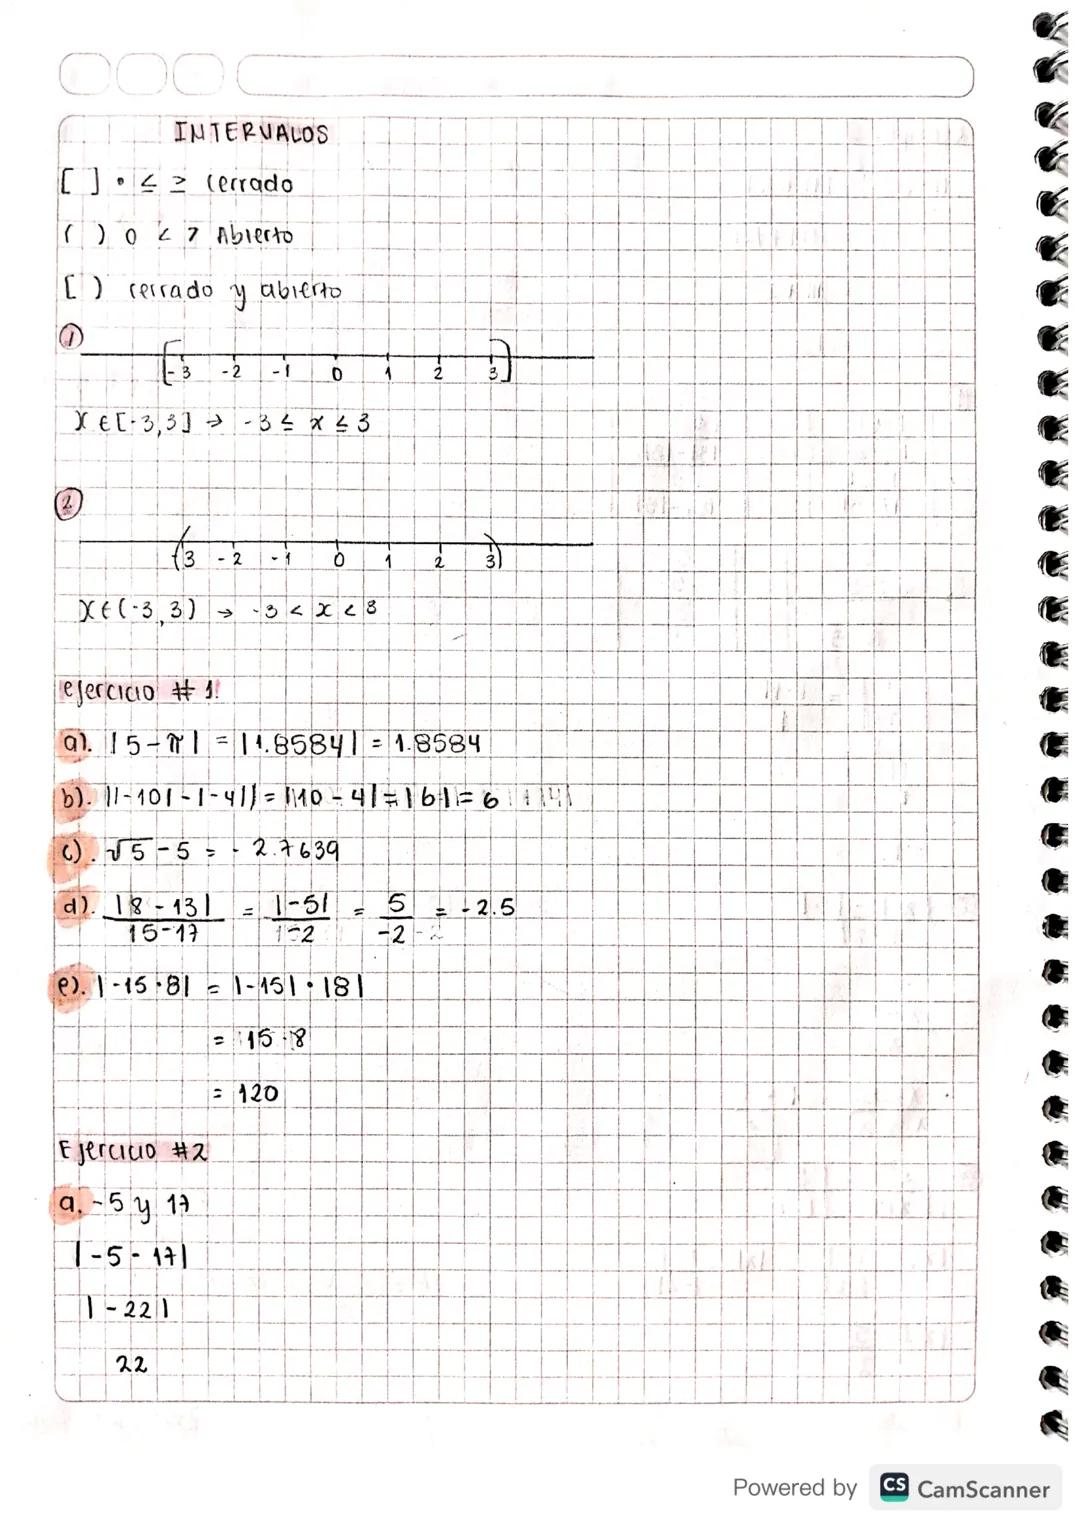 INTERVALOS
[ ] • ≤ ≥ cerrado
( ) o < > Abierto
[ ) cerrado y abierto
1
-3 -2 -1 0 1 2 3
X ∈ [-3,3] → -3 ≤ x ≤ 3
2
-3 -2 -1 0 1 2 3
X ∈ (-3,3) → -3 < x < 3
ejercicio # 1:
a). |5-π| = |1.8584| = 1.8584
b). ||-10|-|-4|| = |10-4| = |6| = 6
c). √5-5 = -2.7639
d). |8-13| / 15-17 = |-5| / -2 = 5 / -2 = -2.5
e). |-15·8| = |-15|·|8|
= 15·8
= 120
Ejercicio #2
a. -5 y 17
|-5-17|
|-22|
22
Powered by CS CamScanner